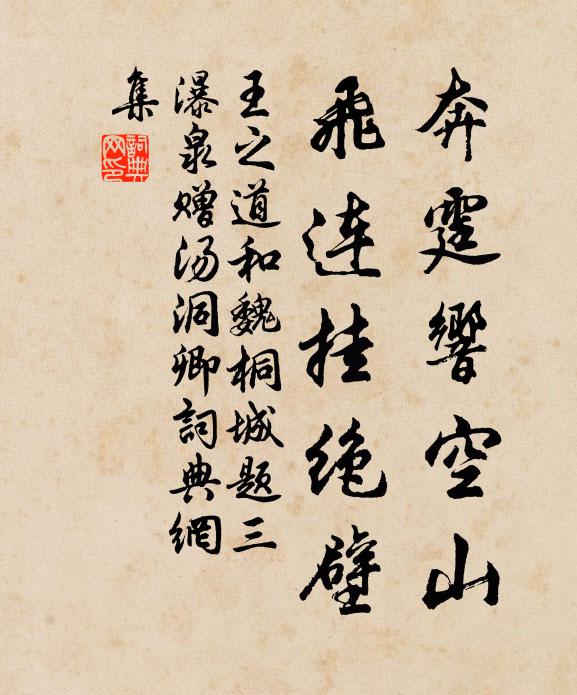 奔霆響空山
飛連挂绝壁
王之道和魏桐城题三
瀑泉赠汤洞卿詞典網
集
詞典网印